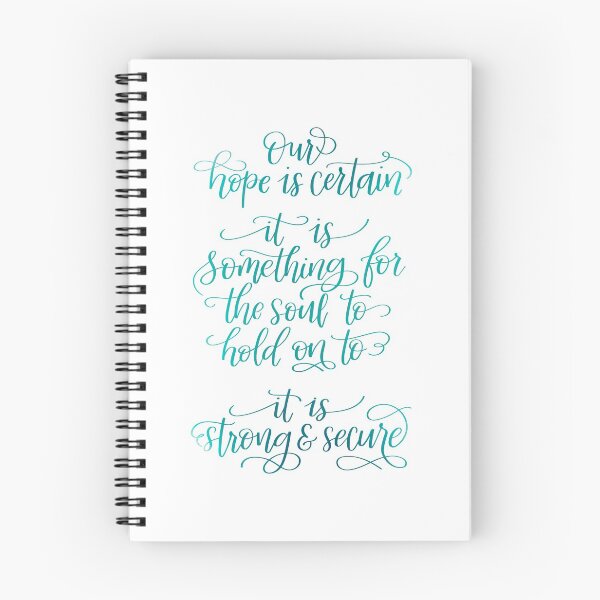 Our
hope is certain
it is
something for
the soul to
hold on to
it is
strong & secure